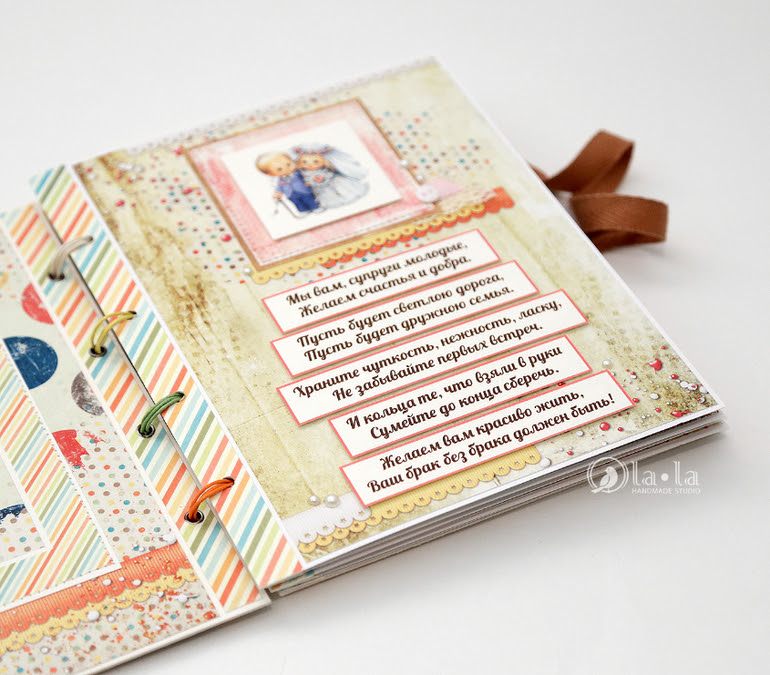 Мы вам, супруги молодые,
Желаем счастья и добра.
Пусть будет светлою дорога,
Пусть будет дружною семья.
Храните чуткость, нежность, ласку,
Не забывайте первых встреч.
И кольца те, что взяли в руки
Сумейте до конца сберечь.
Желаем вам красиво жить,
Ваш брак без брака должен быть!
la•la
HANDMADE STUDIO